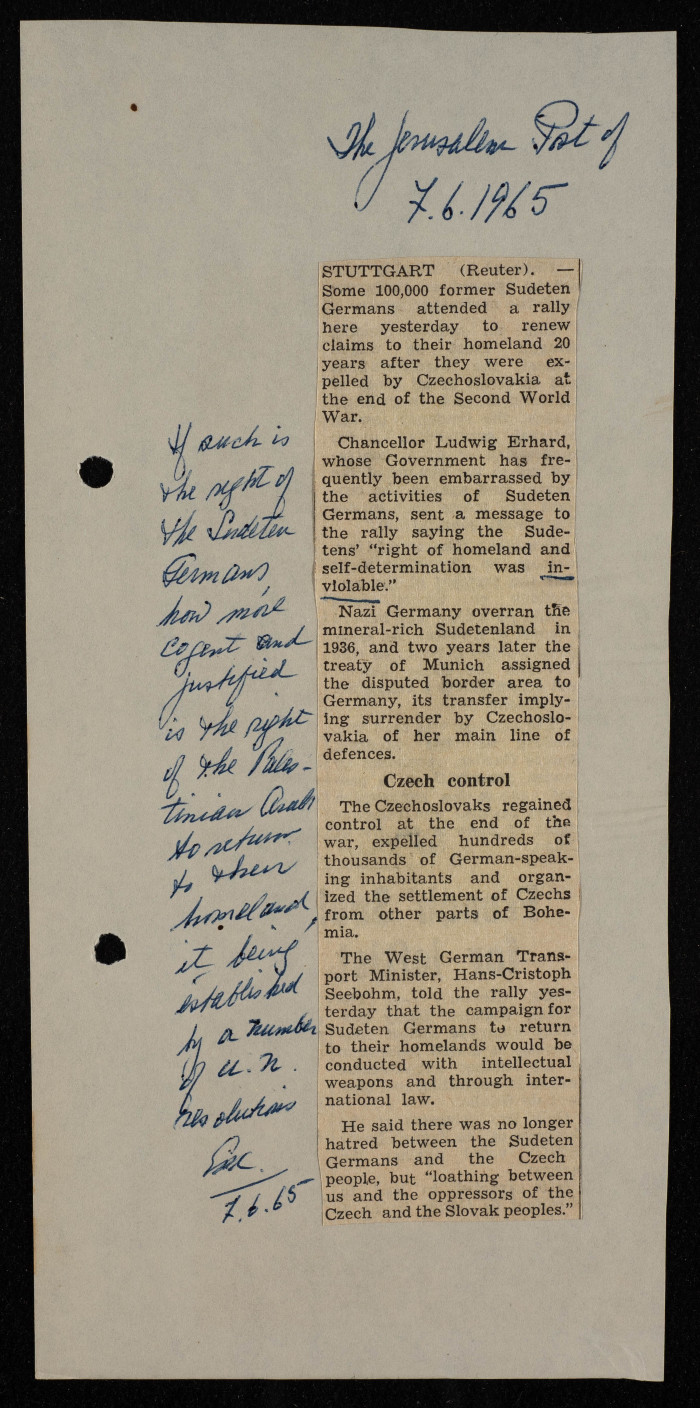 The Jerusalem Post of
7.6.1965
STUTTGART (Reuter). —
Some 100,000 former Sudeten
Germans attended a rally
here yesterday to renew
claims to their homeland 20
years after they were ex-
pelled by Czechoslovakia at
the end of the Second World
War.
Chancellor Ludwig Erhard,
whose Government has fre-
quently been embarrassed by
the activities of Sudeten
Germans, sent a message to
the rally saying the Sude-
tens' "right of homeland and
self-determination was in-
violable."
Nazi Germany overran the
mineral-rich Sudetenland in
1936, and two years later the
treaty of Munich assigned
the disputed border area to
Germany, its transfer imply-
ing surrender by Czechoslo-
vakia of her main line of
defences.
Czech control
The Czechoslovaks regained
control at the end of the
war, expelled hundreds of
thousands of German-speak-
ing inhabitants and organ-
ized the settlement of Czechs
from other parts of Bohe-
mia.
The West German Trans-
port Minister, Hans-Cristoph
Seebohm, told the rally yes-
terday that the campaign for
Sudeten Germans to return
to their homelands would be
conducted with intellectual
weapons and through inter-
national law.
He said there was no longer
hatred between the Sudeten
Germans and the Czech
people, but "loathing between
us and the oppressors of the
Czech and the Slovak peoples."
If such is
the right of
the Sudeten
Germans,
how more
cogent and
justified
is the right
of the Pales-
tinian Arab
to return
to their
homeland,
it being
established
by a number
of U.N.
resolutions
7.6.65